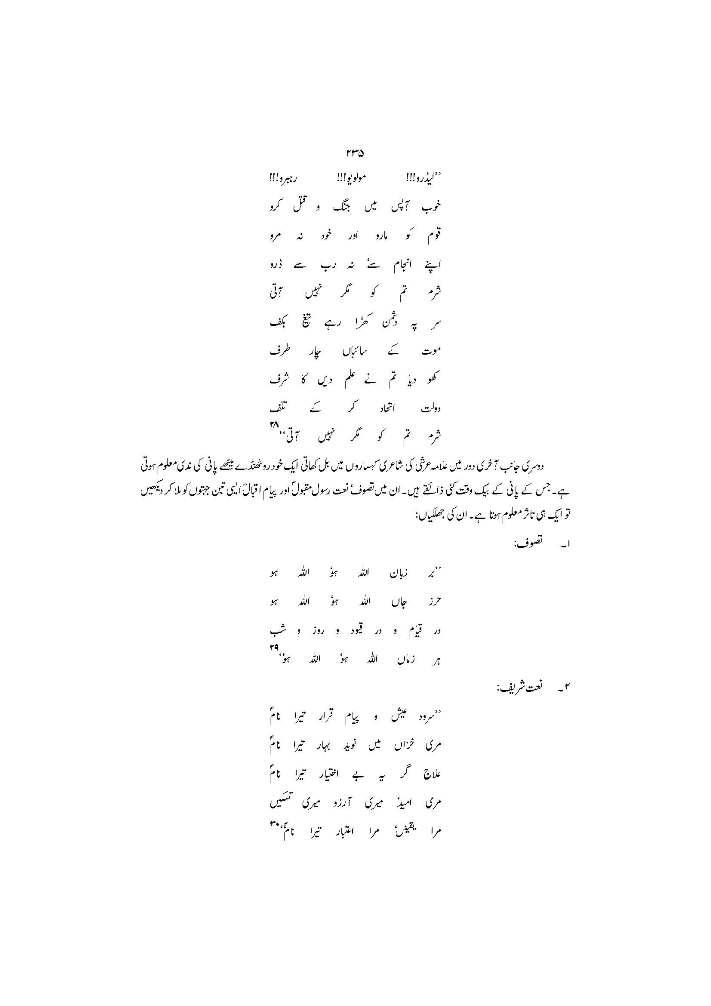 ۲۳۵
’’لیڈرو!!! مولویو!!! رہبرو!!!
خوب آپس میں جنگ و قتل کرو
قوم کو مارو اور خود نہ مرو
اپنے انجام سے نہ رب سے ڈرو
شرم تم کو مگر نہیں آتی
سر پہ دشمن کھڑا رہے تیغ بکف
موت کے سائباں چار طرف
کھو دیا تم نے علم دیں کا شرف
دولت اتحاد کر کے تلف
شرم تم کو مگر نہیں آتی‘‘۲۸
دوسری جانب آخری دور میں علامہ عرشیؔ کی شاعری کہساروں میں بل کھاتی ایک خود رو ٹھنڈے میٹھے پانی کی ندی معلوم ہوتی
ہے۔ جس کے پانی کے بیک وقت کئی ذائقے ہیں۔ ان میں تصوف، نعت رسول مقبولؐ اور پیام اقبالؒ ایسی تین جہتوں کو ملا کر دیکھیں
تو ایک ہی تاثر معلوم ہوتا ہے۔ ان کی جھلکیاں:
۱۔ تصوف:
’’بر زبان اللہ ہوٗ اللہ ہو
حرز جاں اللہ ہوٗ اللہ ہو
در قیام و در قیود و روز و شب
ہر زماں اللہ ہوٗ اللہ ہوٗ‘‘۲۹
۲۔ نعت شریف:
’’سرود عیش و پیام قرار تیرا نامؐ
مری خزاں میں نوید بہار تیرا نامؐ
علاج گر یہ بے اختیار تیرا نامؐ
مری امید میری آرزو میری تسکیں
مرا یقین مرا اعتبار تیرا نامؐ‘‘۳۰